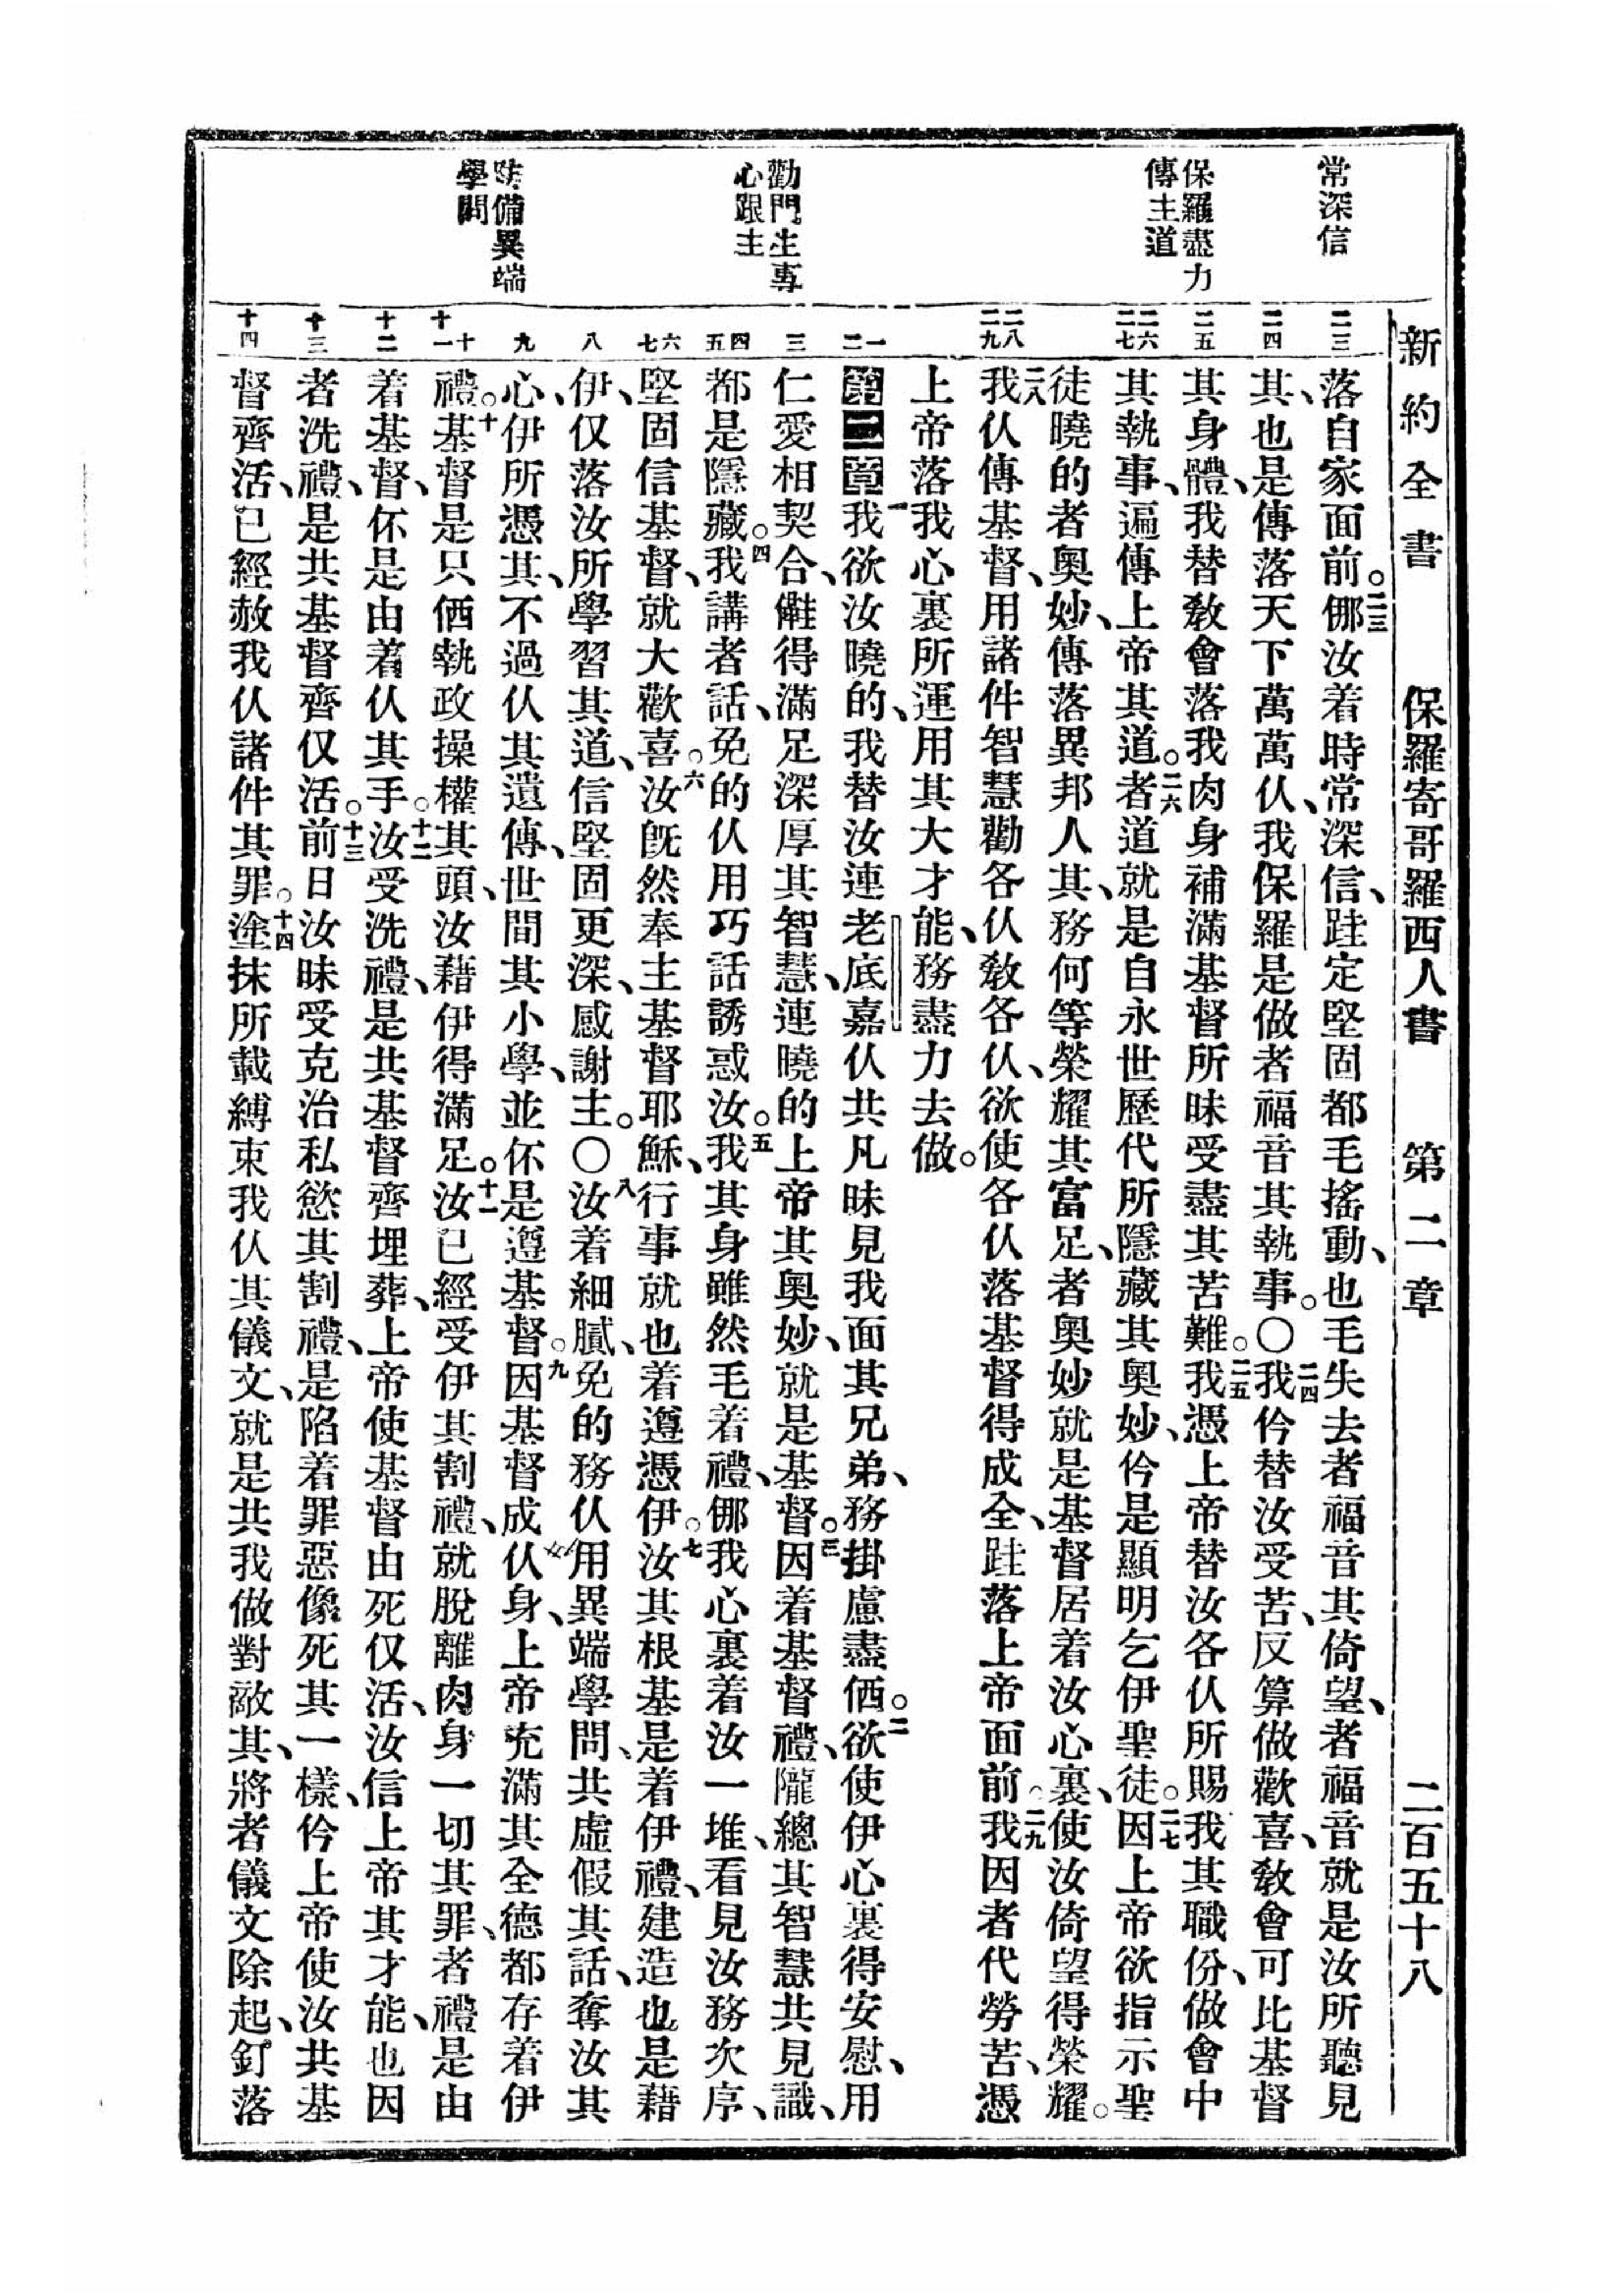 新約全書 保羅寄哥羅西人書 第二章 二百五十八
常深信
保羅盡力
傳主道
勸門生專
心跟主
防備異端
學問
二三
二四
二五
二六
二七
二八
二九
一
二
三
四
五
六
七
八
九
十
十一
十二
十三
十四
落自家面前。二三㑚汝着時常深信、跬定堅固都毛搖動、也毛失去者福音其倚望、者福音就是汝所聽見
其、也是傳落天下萬萬仈、我保羅是做者福音其執事。〇二四我仱替汝受苦、反算做歡喜、敎會可比基督
其身體、我替敎會落我肉身補滿基督所昧受盡其苦難。二五我憑上帝替汝各仈所賜我其職份、做會中
其執事、遍傳上帝其道。二六者道就是自永世歷代所隱藏其奧妙、仱是顯明乞伊聖徒。二七因上帝欲指示聖
徒曉的者奧妙、傳落異邦人其、務何等榮耀其富足、者奧妙就是基督居着汝心裏、使汝倚望得榮耀。
二八我仈傳基督、用諸件智慧勸各仈敎各仈、欲使各仈落基督得成全、跬落上帝面前。二九我因者代勞苦、憑
上帝落我心裏所運用其大才能、務盡力去做。
第二章一我欲汝曉的、我替汝連老底嘉仈共凡昧見我面其兄弟、務掛慮盡𠋡。二欲使伊心裏得安慰、用
仁愛相契合、儺得滿足深厚其智慧、連曉的上帝其奧妙、就是基督。三因着基督禮、隴總其智慧共見識、
都是隱藏。四我講者話、免的仈用巧話誘惑汝。五我其身雖然毛着禮、㑚我心裏着汝一堆、看見汝務次序、
堅固信基督、就大歡喜。六汝旣然奉主基督耶穌、行事就也着遵憑伊。七汝其根基是着伊禮、建造也是藉
伊、仅落汝所學習其道、信堅固更深、感謝主。〇八汝着細膩、免的務仈用異端學問、共虛假其話、奪汝其
心、伊所憑其、不過仈其遺傳、世間其小學、並伓是遵基督。九因基督成仈身、上帝充滿其全德都存着伊
禮。十基督是只𠋡執政操權其頭、汝藉伊得滿足。十一汝已經受伊其割禮、就脫離肉身一切其罪、者禮是由
着基督、伓是由着仈其手。十二汝受洗禮、是共基督齊埋葬、上帝使基督由死仅活、汝信上帝其才能、也因
者洗禮、是共基督齊仅活。十三前日汝昧受克治私慾其割禮、是陷着罪惡像死其一樣、仱上帝使汝共基
督齊活、已經赦我仈諸件其罪。十四塗抹所載縛束我仈其儀文、就是共我做對敵其、將者儀文除起、釘落